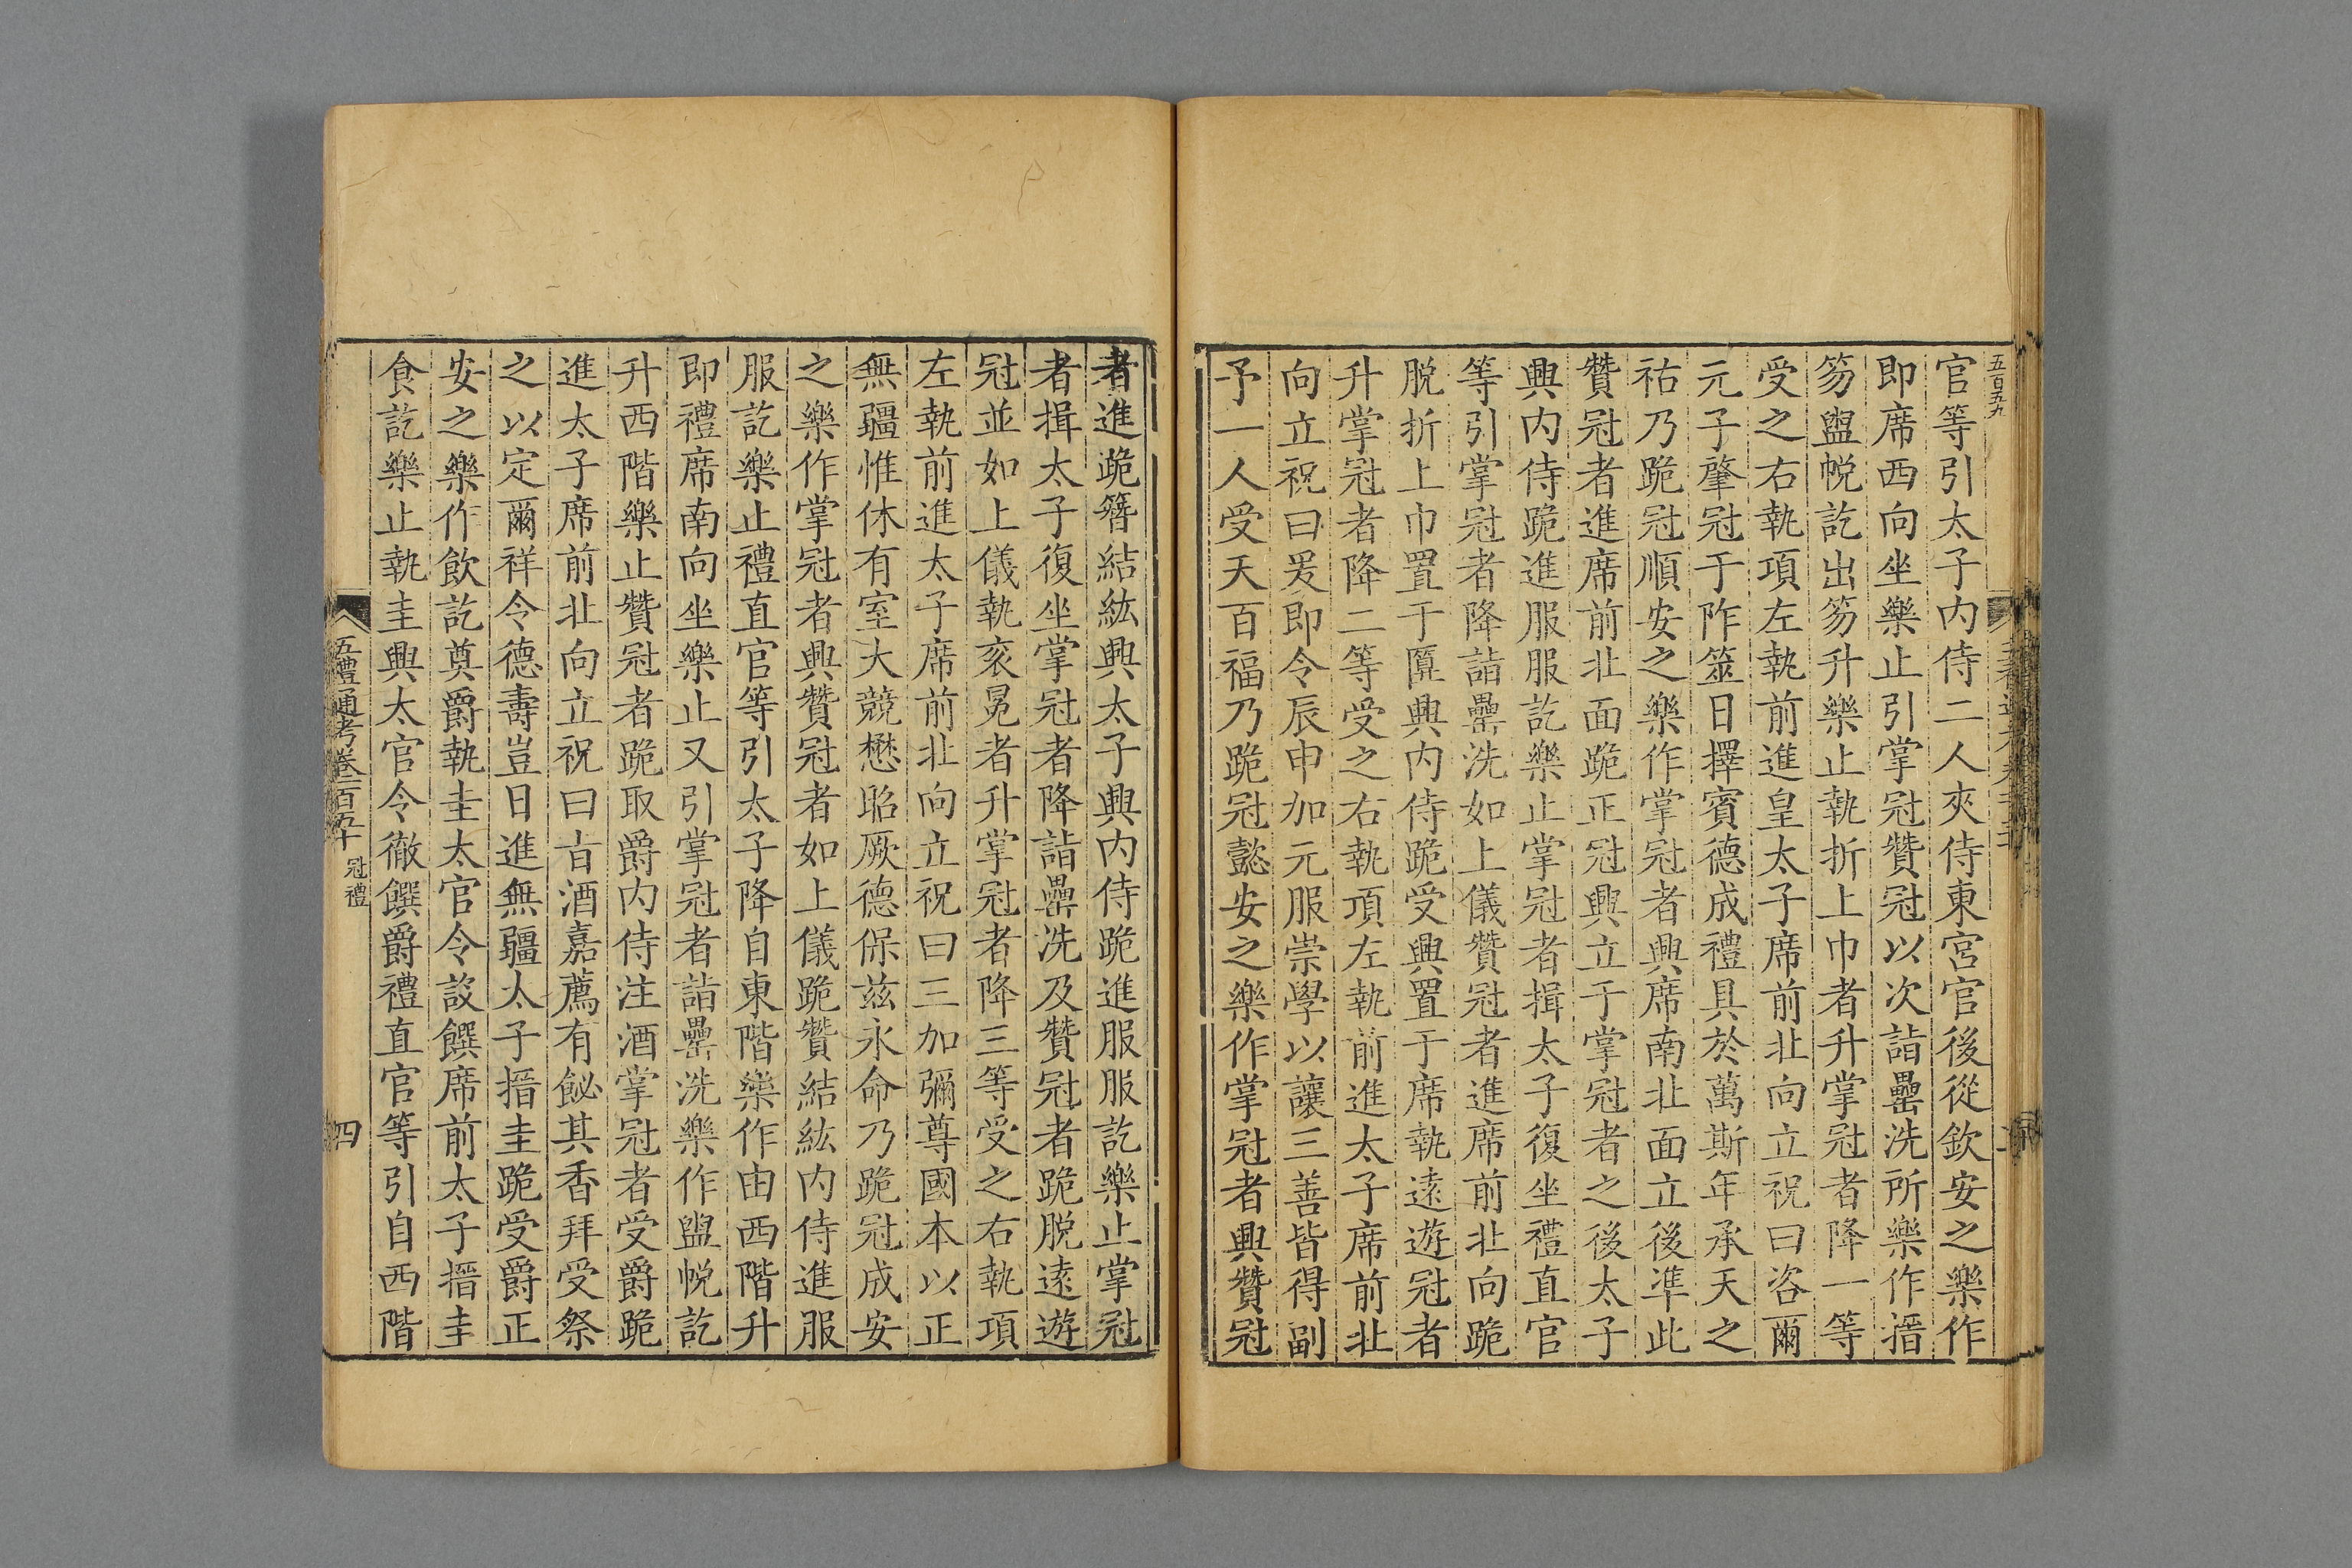 五百五九
官等引太子内侍二人夾侍東宮官後從欽安之樂作
即席西向坐樂止引掌冠贊冠以次詣罍洗所樂作搢
笏盥帨訖出笏升樂止執折上巾者升掌冠者降一等
受之右執項左執前進皇太子席前北向立祝曰咨爾
元子肇冠于阼筮日擇賓德成禮具於萬斯年承天之
祜乃跪冠順安之樂作掌冠者興席南北面立後準此
贊冠者進席前北面跪正冠興立于掌冠者之後太子
興内侍跪進服服訖樂止掌冠者揖太子復坐禮直官
等引掌冠者降詣罍洗如上儀贊冠者進席前北向跪
脱折上巾置于匴興内侍跪受興置于席執遠遊冠者
升掌冠者降二等受之右執項左執前進太子席前北
向立祝曰爰即令辰申加元服崇學以讓三善皆得副
予一人受天百福乃跪冠懿安之樂作掌冠者興贊冠
者進跪簪結紘興太子興内侍跪進服服訖樂止掌冠
者揖太子復坐掌冠者降詣罍洗及贊冠者跪脱遠遊
冠並如上儀執衮冕者升掌冠者降三等受之右執項
左執前進太子席前北向立祝曰三加彌尊國本以正
無疆惟休有室大競懋昭厥德保兹永命乃跪冠成安
之樂作掌冠者興贊冠者如上儀跪贊結紘内侍進服
服訖樂止禮直官等引太子降自東階樂作由西階升
即禮席南向坐樂止又引掌冠者詣罍洗樂作盥帨訖
升西階樂止贊冠者跪取爵内侍注酒掌冠者受爵跪
進太子席前北向立祝曰㫖酒嘉薦有飶其香拜受祭
之以定爾祥令德壽豈日進無疆太子搢圭跪受爵正
安之樂作飲訖奠爵執圭太官令設饌席前太子搢圭
食訖樂止執圭興太官令徹饌爵禮直官等引自西階
五禮通考卷一百五十 冠禮 四